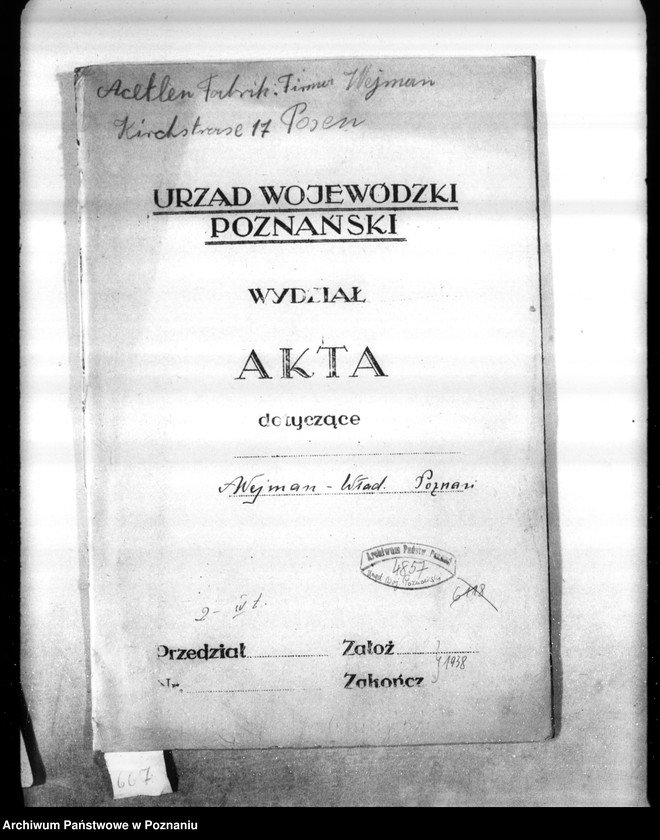 Acetlen Fabrik. Firma Wejman
Kirchstrasse 17 Posen
URZĄD WOJEWÓDZKI
POZNAŃSKI
WYDZIAŁ
AKTA
dotyczące
Wejman - Wład. Poznań
Archiwum Państw. Poznań
4857
Urząd Woj. Poznański
6118
Przedział
Założ
1938
Nr.
Zakończ
667
Archiwum Państwowe w Poznaniu